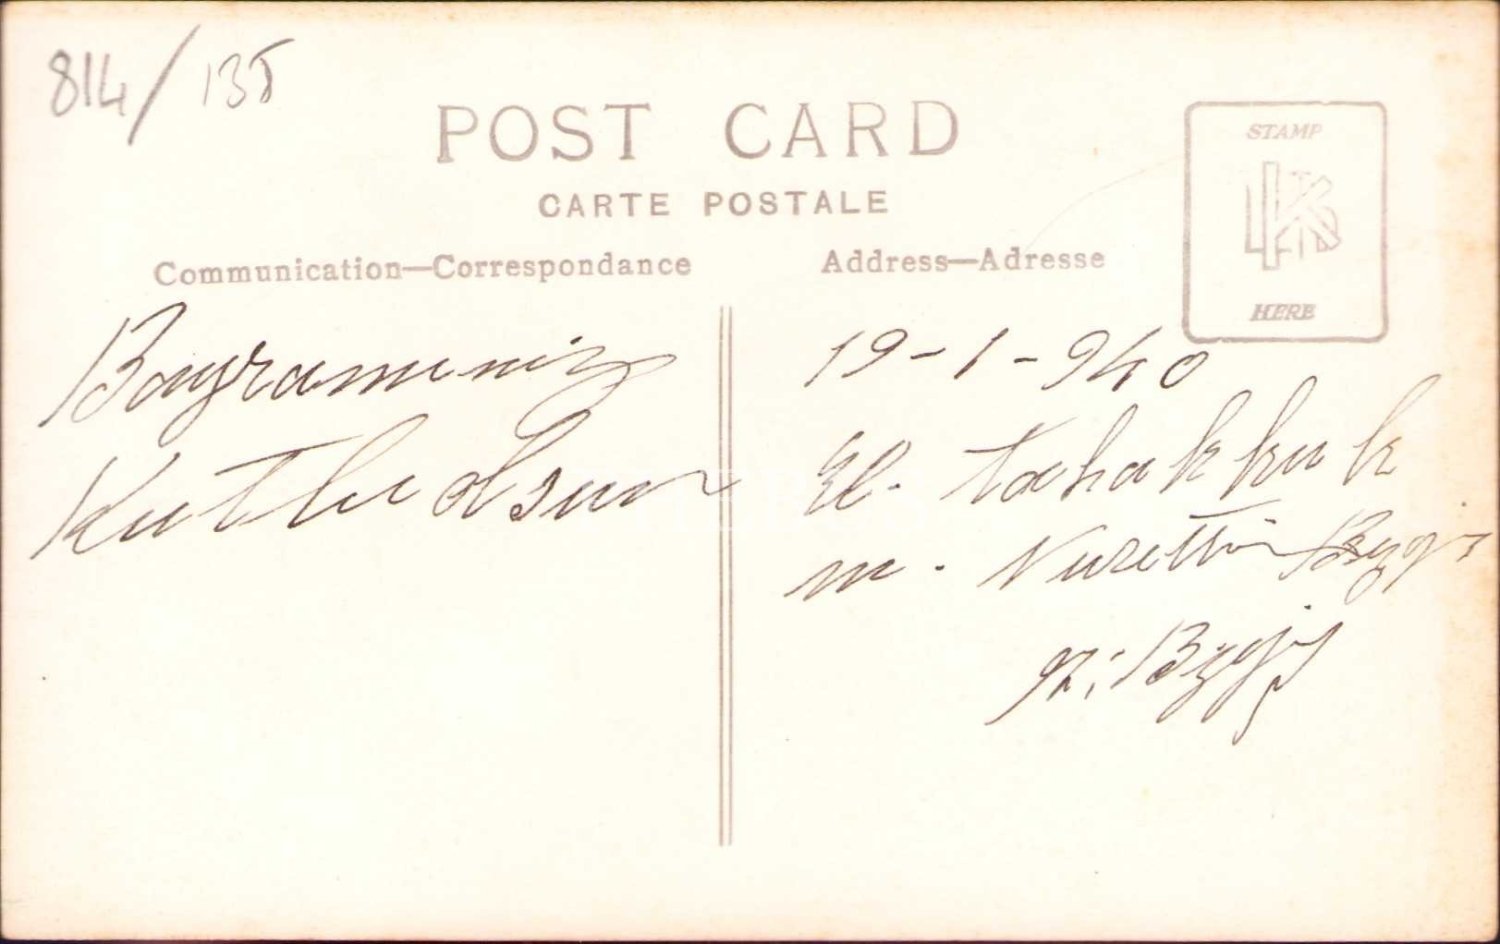 814/135
POST CARD
CARTE POSTALE
Communication—Correspondance
Address—Adresse
STAMP
HERE
Bayramınız
Kutlu olsun
19-1-940
El. tahakkuk
m. Nurettin